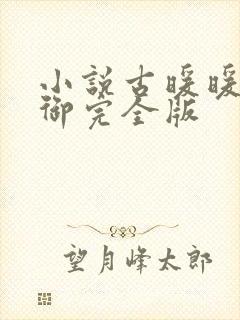 小説古暖暖
御完全版
望月峰太郎